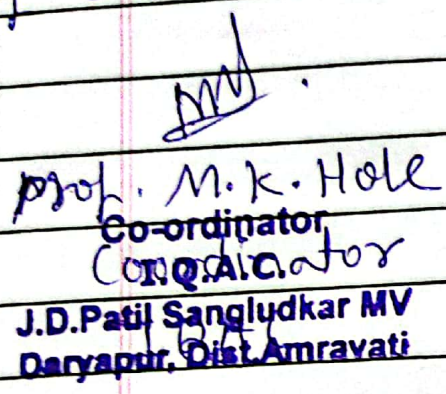 Prof. M.K. Hole
Co-ordinator
Coordinator
I.Q.A.C.
J.D.Patil Sangludkar MV
Daryapur, Dist.Amravati